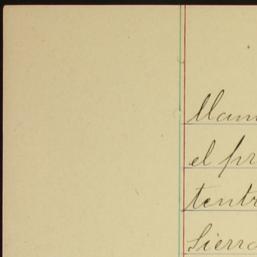 Mam
el pr
tentr
Sierra